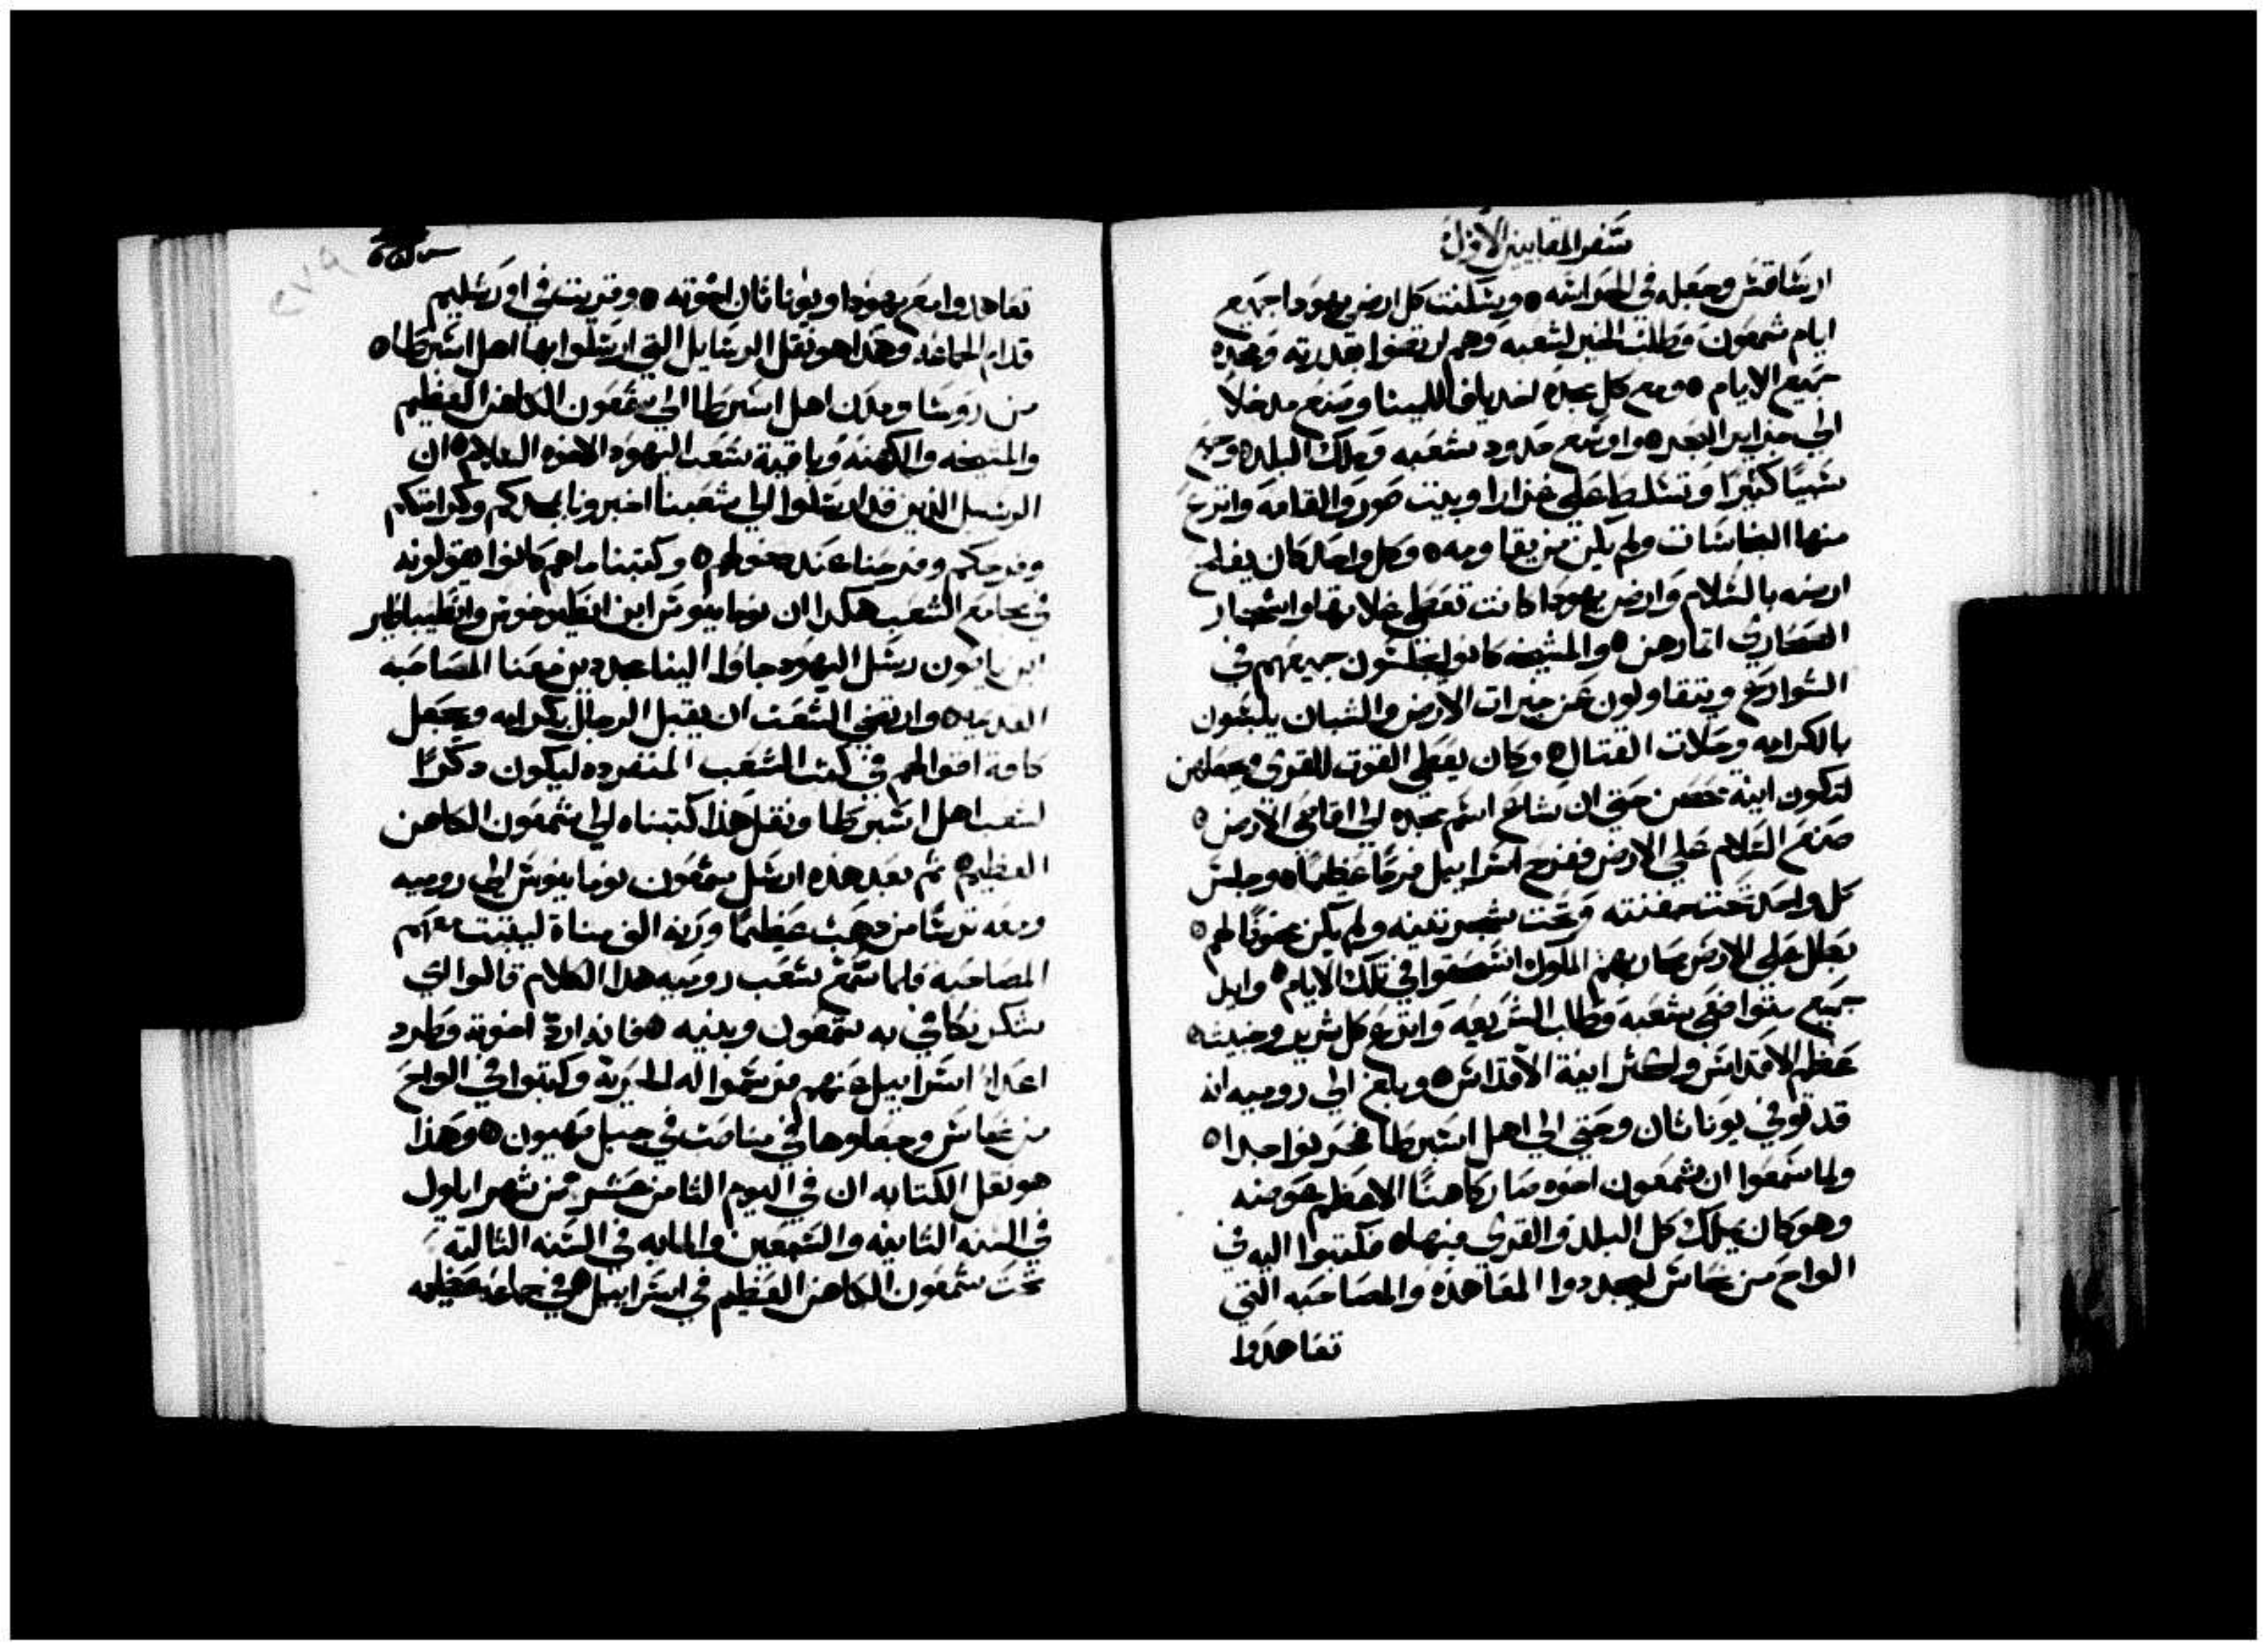 سفر المقابيين الاول
ارشاقس وجعله في الحراسه ٥ وسكنت كل ارض يهودا جميع
ايام شمعون وطلب الخير لشعبه وهم ارتضوا بقدرته ومجده
جميع الايام ٥ ومع كل مجده اخد يافا للمينا وصنع مدخلا
الي جزاير البحر ٥ واوسع حدود شعبه وملك البلد ٥ وجمع
سبيا كثيرا وتسلط علي غزارا وبيت صور والقامه وانتزع
منها النجاسات ولم يكن من يقاومه ٥ وكل واحد كان يفلح
ارضه بالسلام وارض يهودا كانت تعطي غلاتها واشجار
الصحاري اثمارهن ٥ والمشيخه كانوا يجلسون جميعهم في
الشوارع ويتقاولون عن خيرات الارض والشبان يلبسون
بالكرامه وحلات القتال ٥ وكان يعطي القوت للقري ويجعلهن
لتكون انية حصن حتي ان شاع اسم مجده الي اقاصي الارض ٥
صنع السلام علي الارض ففرح اسراييل فرحا عظيما ٥ وجلس
كل واحد تحت جفنته وتحت شجر تينه ولم يكن مخوفا لهم ٥
بطل علي الارض محاربهم الملوك انسحقوا في تلك الايام ٥ وايد
جميع متواضعي شعبه وطلب الشريعه وانتزع كل شرير وخبيث ٥
عظم الاقداس وكثر انية الاقداس ٥ وبلغ الي روميه انه
قد توفي يوناثان وحتي الي اهل اسبرطا فحزنوا جدا ٥
ولما سمعوا ان شمعون اخوه صار كاهنا الاعظم عوضه
وهو كان يملك كل البلد والقري فيها ٥ فكتبوا اليه في
الواح من نحاس ليجددوا المعاهده والمصاحبه التي
تعاهدوا
تعاهدوا مع يهودا ويوناثان اخوته ٥ وقريت في اورشليم
قدام الجماعه وهذا هو نقل الرسايل التي ارسلوا بها اهل اسبرطا ٥
من روسا ومدن اهل اسبرطا الي شمعون الكاهن العظيم
والمشيخه والكهنه وباقية شعب اليهود الاخوه السلام ٥ ان
الرسل الذين قد ارسلوا الي شعبنا اخبرونا بمجدكم وكرامتكم
وفرحكم وفرحنا عند دخولهم ٥ وكتبنا ما هم كانوا يقولونه
في مجامع الشعب هكدا ان نوماينوس ابن انطيوخوس وانطيباطر
ابن ياسون رسل اليهود جاوا الينا مجددين معنا المصاحبه
القديمه ٥ وارتضي الشعب ان يقبل الرجال بكرامه ويجعل
كافة اقوالهم في كتب الشعب المنفرده ليكون ذكرا
لشعب اهل اسبرطا ونقل هذا كتبناه الي شمعون الكاهن
العظيم ٥ ثم بعد هذه ارسل شمعون نوماينوس الي روميه
ومعه ترسا من دهب عظيما وزنه الف مناة ليثبت معهم
المصاحبه فلما سمع شعب روميه هدا الكلام قالوا اي
شكر نكافي به شمعون وبنيه ٥ فانه ارد اخوته وطرد
اعدا اسراييل عنهم فرسموا له الحريه وكتبوا في الواح
من نحاس وجعلوها في مناصب في جبل صهيون ٥ وهذا
هو نقل الكتابه ان في اليوم الثامن عشر من شهر ايلول
في السنه الثانيه والسبعين والمايه في السنه الثالثه
تحت شمعون الكاهن العظيم في اسراييل ٥ في جماعه عظيمه